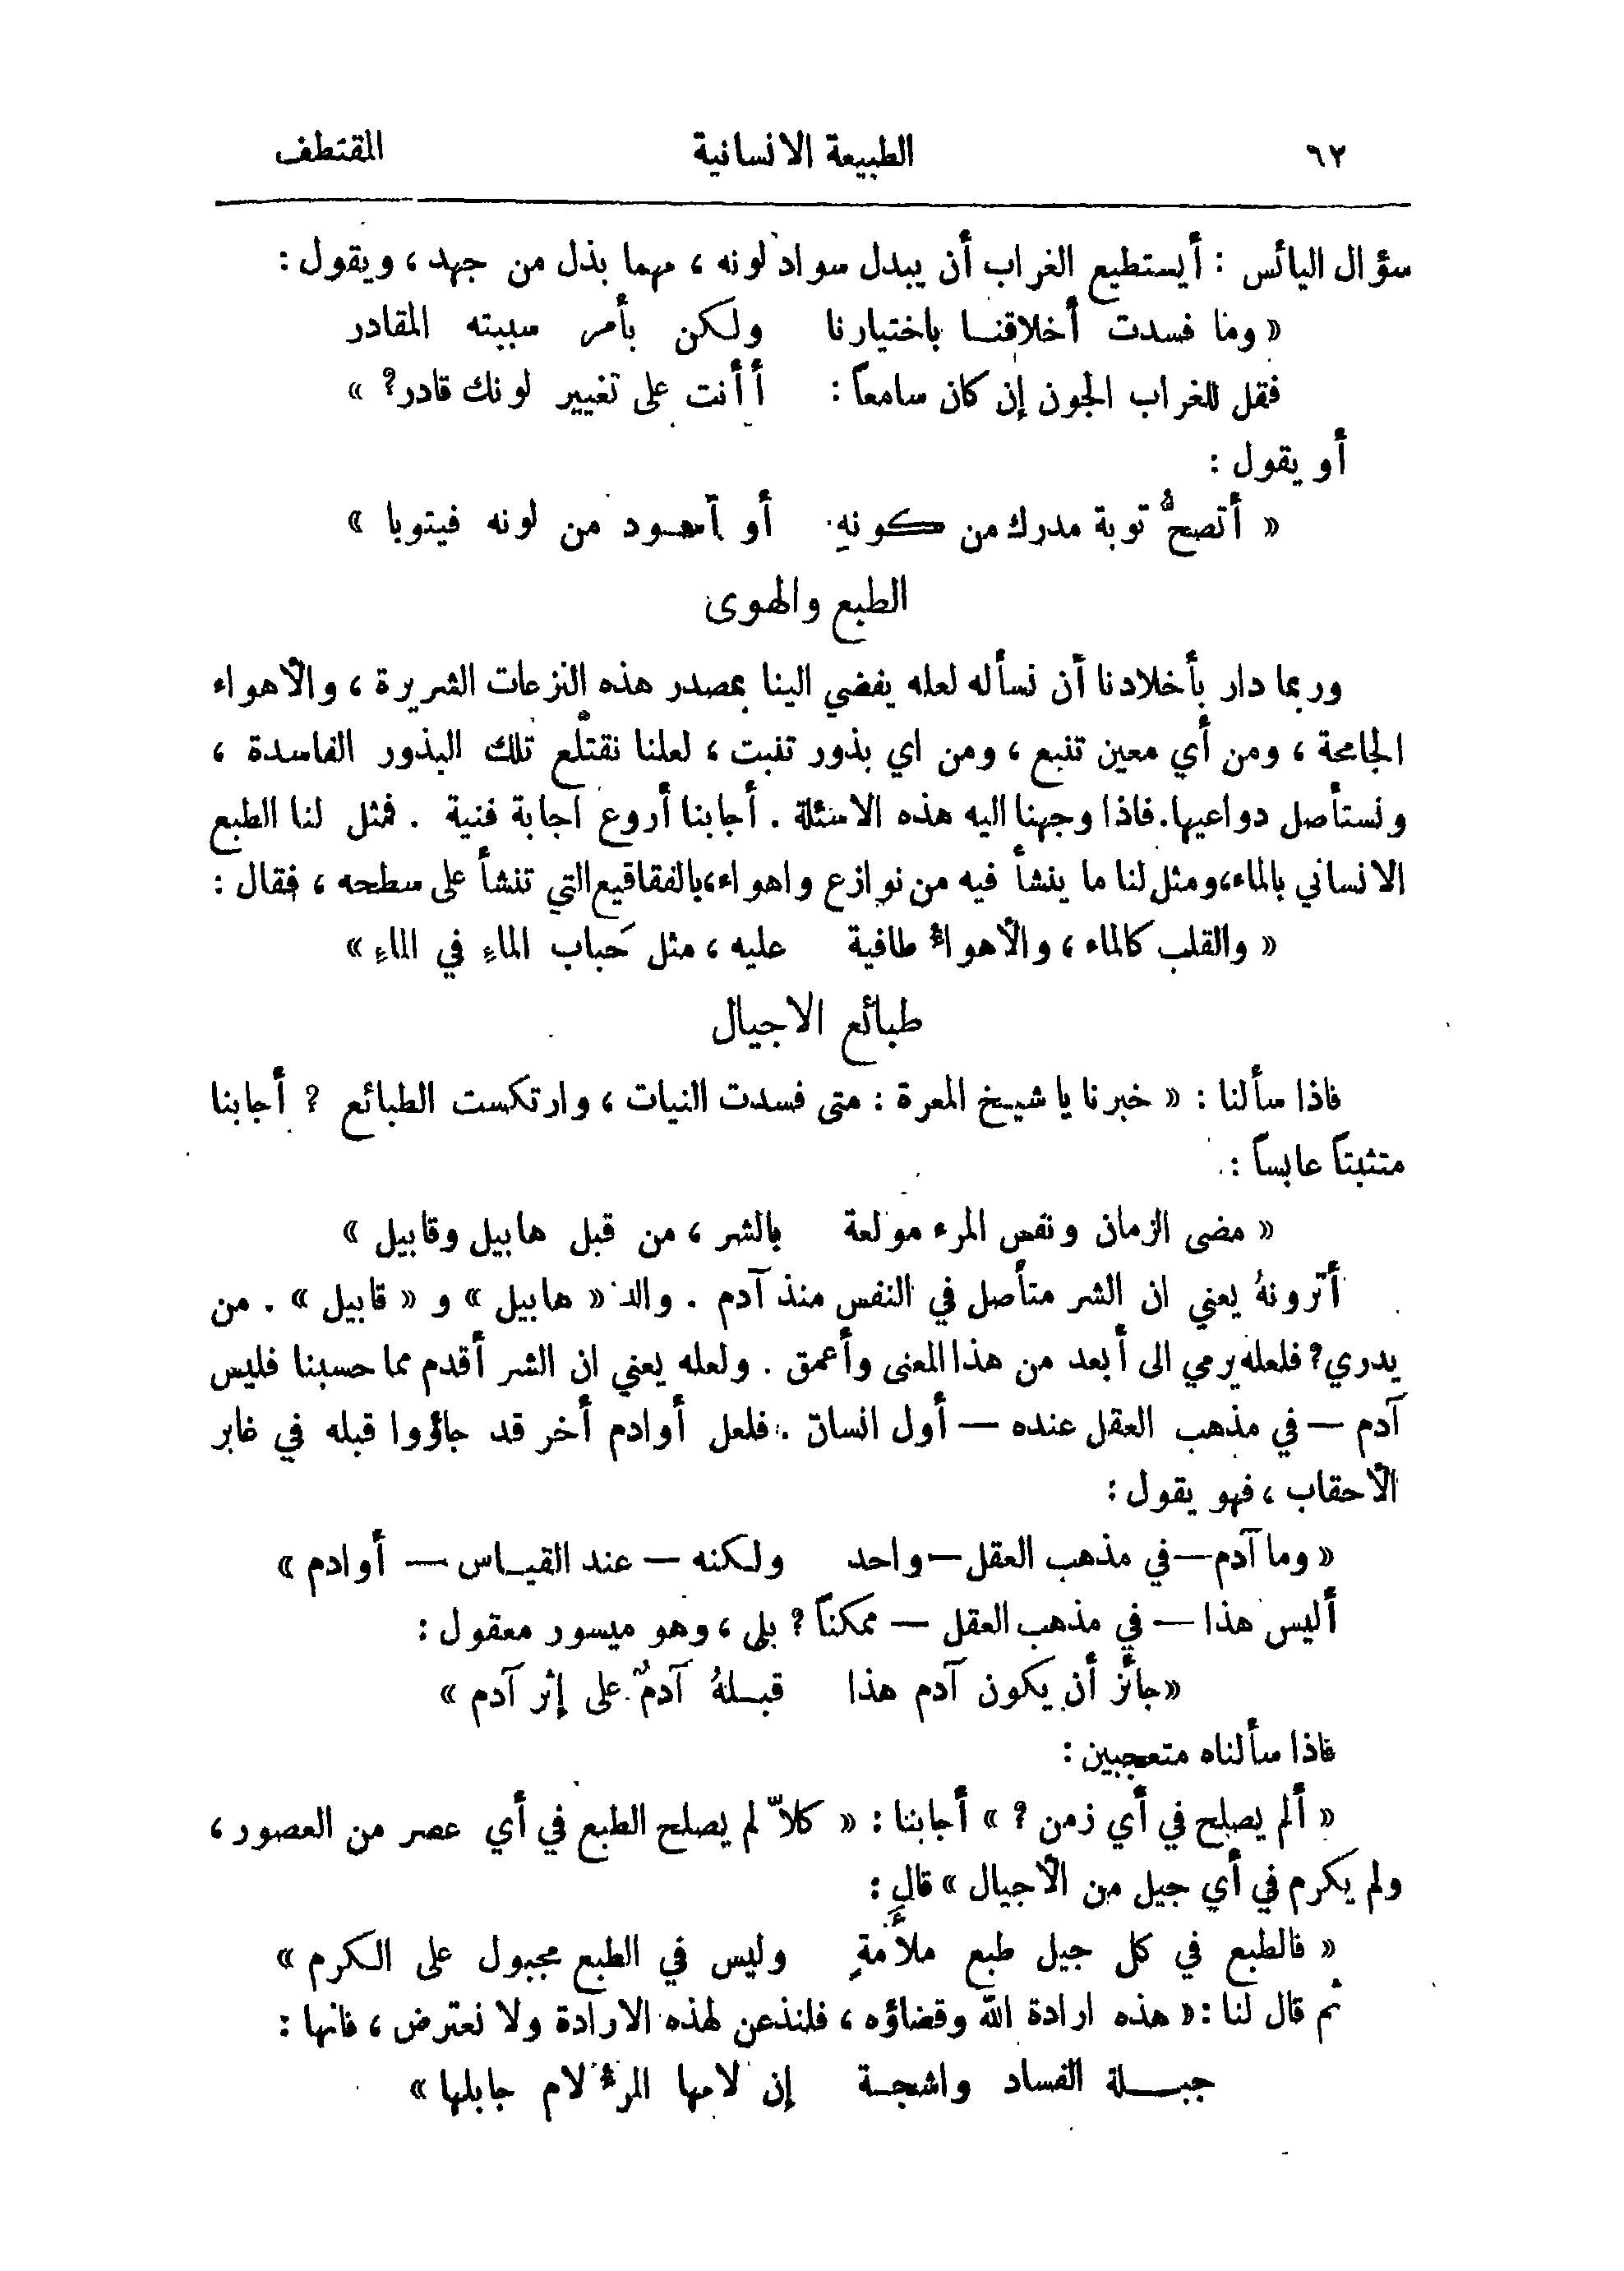 ٦٢ الطبيعة الانسانية المقتطف
سؤال اليائس : أيستطيع الغراب أن يبدل سواد لونه ، مهما بذل من جهد ، ويقول :
« وما فسدت أخلاقنا باختيارنا ولكن بأمر سببته المقادر
فقل للغراب الجون إن كان سامعاً : أأنت على تغيير لونك قادر؟ »
أو يقول :
« أتصحُّ توبة مدرك من كونهِ أو أسود من لونه فيتوبا »
الطبع والهوى
وربما دار بأخلادنا أن نسأله لعله يفضي الينا بمصدر هذه النزعات الشريرة ، والأهواء
الجامحة ، ومن أي معين تنبع ، ومن اي بذور تنبت ، لعلنا نقتلع تلك البذور الفاسدة ،
ونستأصل دواعيها . فاذا وجهنا اليه هذه الاسئلة . أجابنا أروع اجابة فنية . فمثل لنا الطبع
الانساني بالماء ، ومثل لنا ما ينشأ فيه من نوازع واهواء ، بالفقاقيع التي تنشأ على سطحه ، فقال :
« والقلب كالماء ، والأهواءُ طافية عليه ، مثل حَباب الماءِ في الماءِ »
طبائع الاجيال
فاذا سألنا : « خبرنا يا شيخ المعرة : متى فسدت النيات ، وارتكست الطبائع ؟ أجابنا
متثبتاً عابساً :
« مضى الزمان ونفس المرء مولعة بالشر ، من قبل هابيل وقابيل »
أترونهُ يعني ان الشر متأصل في النفس منذ آدم . والد « هابيل » و « قابيل » . من
يدري؟ فلعله يرمي الى أبعد من هذا المعنى وأعمق . ولعله يعني ان الشر أقدم مما حسبنا فليس
آدم — في مذهب العقل عنده — أول انسان . فلعل أوادم أخر قد جاؤوا قبله في غابر
الأحقاب ، فهو يقول :
« وما آدم — في مذهب العقل — واحد ولكنه — عند القياس — أوادم »
أليس هذا — في مذهب العقل — ممكناً ؟ بلى ، وهو ميسور معقول :
« جائز أن يكون آدم هذا قبلهُ آدمٌ على إثر آدم »
فاذا سألناه متعجبين :
« ألم يصلح في أي زمن ؟ » أجابنا : « كلاّ لم يصلح الطبع في أي عصر من العصور ،
ولم يكرم في أي جيل من الأجيال » قال :
« فالطبع في كل جيل طبع ملأَمةٍ وليس في الطبع مجبول على الكرم »
ثم قال لنا : « هذه ارادة الله وقضاؤه ، فلنذعن لهذه الارادة ولا نعترض ، فانها :
جبلة الفساد واشجة إن لامها المرءُ لام جابلها »